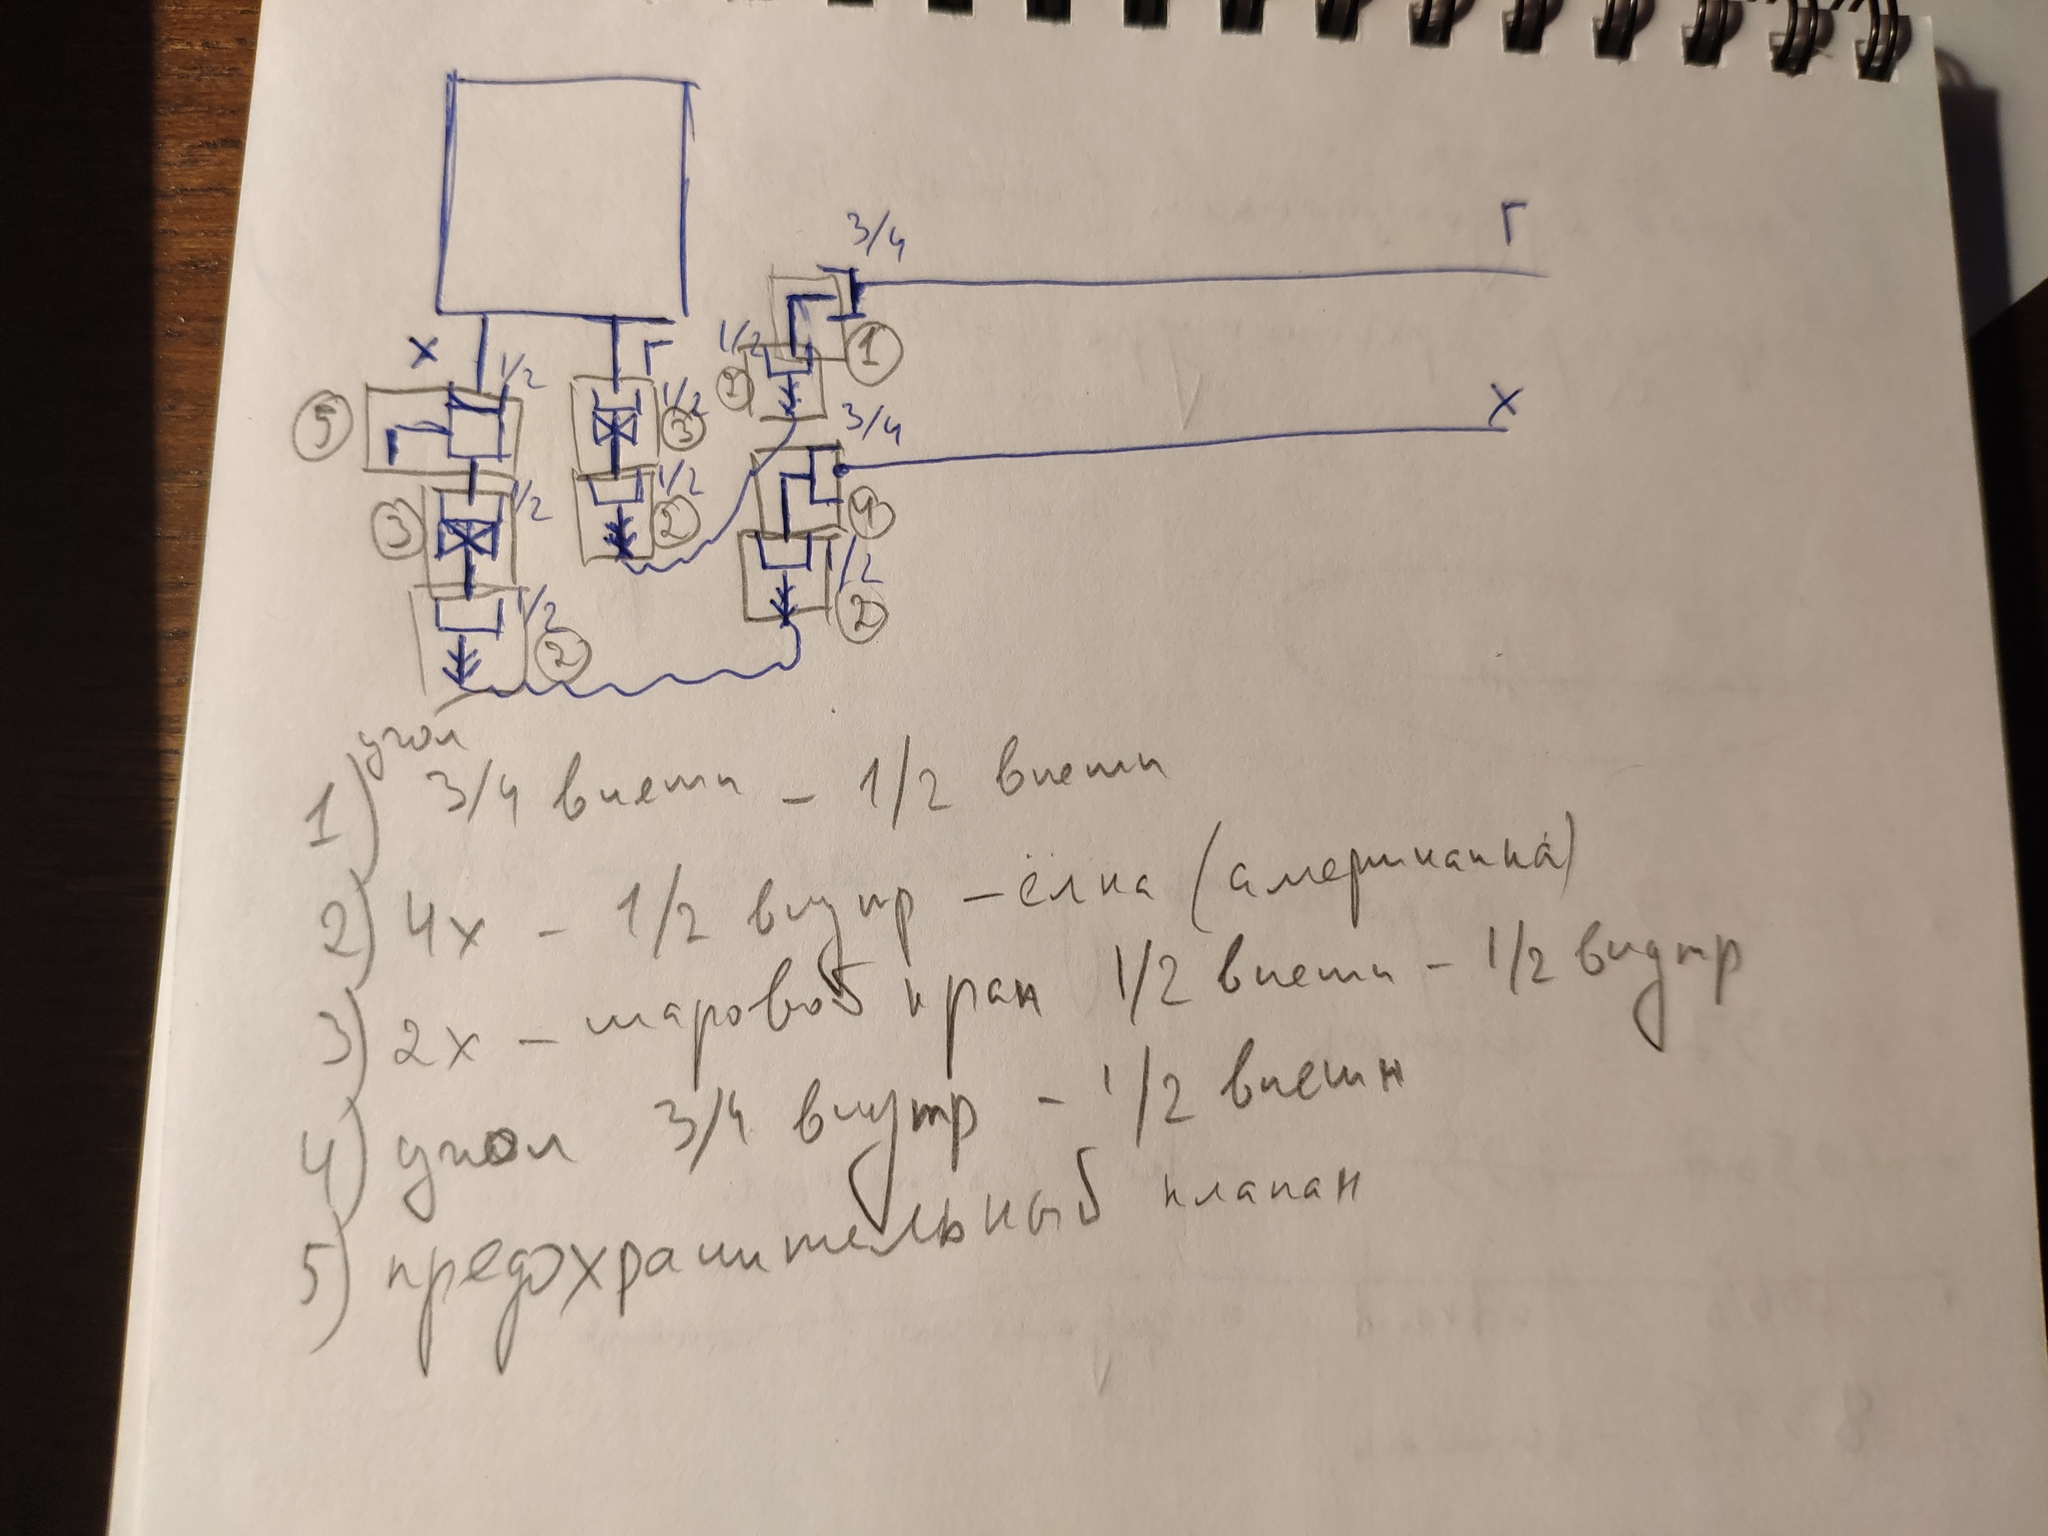 Г
3/4
Х
1/2
Г
1/2
1
2
5
1/2
3
3/4
Х
3
1/2
1/2
2
4
1/2
2
1/2
2
угол
1) 3/4 внешн - 1/2 внешн
2) 4х - 1/2 внутр - ёлка (американка)
3) 2х - шаровой кран 1/2 внешн - 1/2 внутр
4) угол 3/4 внутр - 1/2 внешн
5) предохранительный клапан